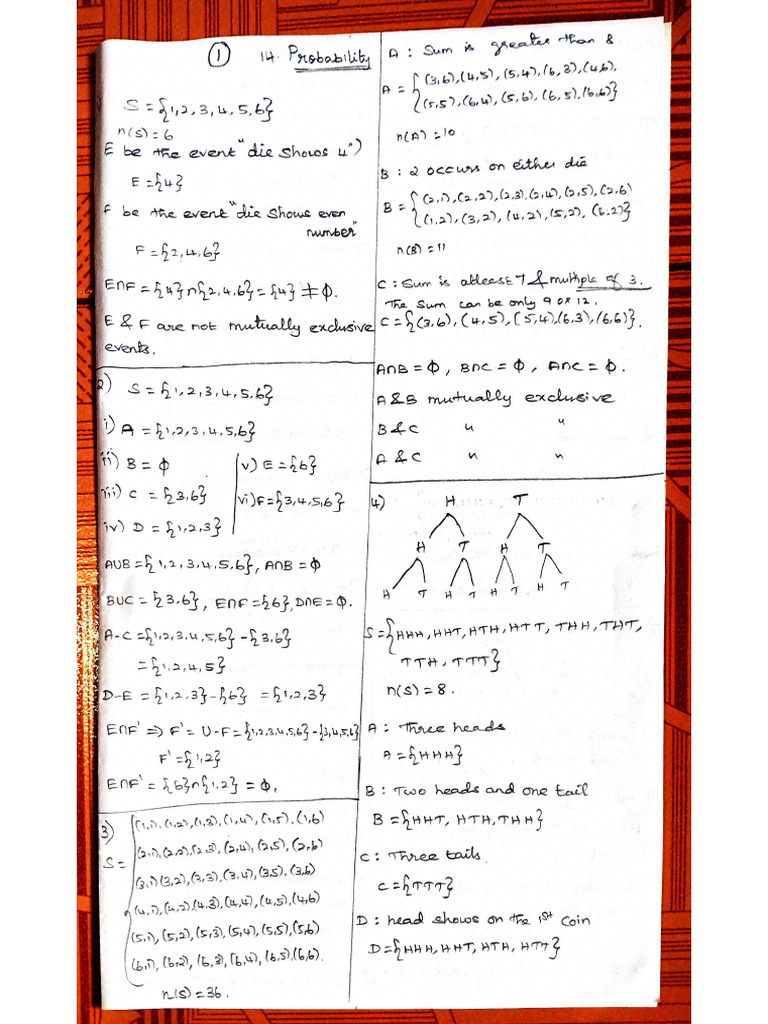 ① 14. Probability
S = {1,2,3,4,5,6}
n(S) = 6
E be the event "die shows 4")
E = {4}
F be the event "die shows even
number"
F = {2,4,6}
E∩F = {4}∩{2,4,6} = {4} ≠ Φ.
E & F are not mutually exclusive
events.
2) S = {1,2,3,4,5,6}
i) A = {1,2,3,4,5,6}
ii) B = Φ
v) E = {6}
iii) C = {3,6}
vi) F = {3,4,5,6}
iv) D = {1,2,3}
AUB = {1,2,3,4,5,6}, A∩B = Φ
BUC = {3,6}, E∩F = {6}, D∩E = Φ.
A-C = {1,2,3,4,5,6} - {3,6}
= {1,2,4,5}
D-E = {1,2,3} - {6} = {1,2,3}
E∩F' ⇒ F' = U-F = {1,2,3,4,5,6} - {3,4,5,6}
F' = {1,2}
E∩F' = {6}∩{1,2} = Φ.
3) S = {(1,1), (1,2), (1,3), (1,4), (1,5), (1,6)
(2,1), (2,2), (2,3), (2,4), (2,5), (2,6)
(3,1) (3,2), (3,3), (3,4), (3,5), (3,6)
(4,1), (4,2), (4,3), (4,4), (4,5), (4,6)
(5,1), (5,2), (5,3), (5,4), (5,5), (5,6)
(6,1), (6,2), (6,3), (6,4), (6,5), (6,6).
n(S) = 36.
A : Sum is greater than 8
A = {(3,6), (4,5), (5,4), (6,3), (4,6),
(5,5), (6,4), (5,6), (6,5), (6,6)}
n(A) = 10.
B : 2 occurs on either die
B = {(2,1), (2,2), (2,3), (2,4), (2,5), (2,6)
(1,2), (3,2), (4,2), (5,2), (6,2)}
n(B) = 11
C : Sum is atleast 7 & multiple of 3.
The Sum can be only 9 or 12.
C = {(3,6), (4,5), (5,4), (6,3), (6,6)}.
A∩B = Φ, B∩C = Φ, A∩C = Φ.
A & B mutually exclusive
B & C " "
A & C " "
4) H T
H T H T
H T H T H T H T
S = {HHH, HHT, HTH, HTT, THH, THT,
TTH, TTT}
n(S) = 8.
A : Three heads
A = {HHH}
B : Two heads and one tail
B = {HHT, HTH, THH}
C : Three tails.
C = {TTT}
D : head shows on the 1st coin
D = {HHH, HHT, HTH, HTT}